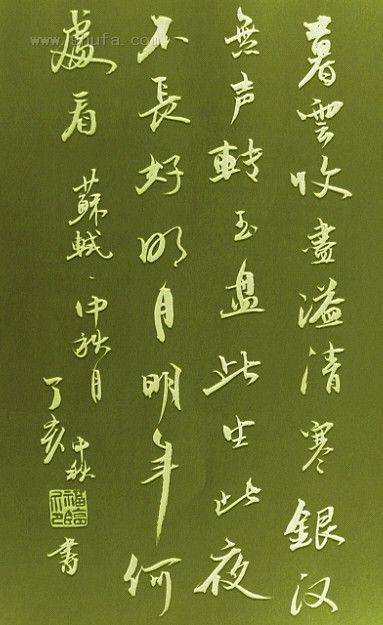 暮雲收盡溢清寒銀汉
無声轉玉盘此生此夜
不長好明月明年何
處看 蘇軾·中秋月
丁亥中秋書